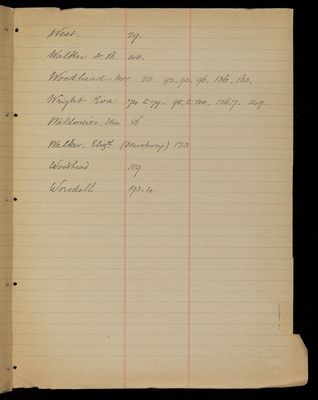 West. 29.
Walker 40.
Woodhead Mrs 50. 92. 93. 96. 136. 163.
Wright Eva 74 to 79. 98. to 100. 126.7. 149.
Waldmeier, Theo 56
Walker, Elizth (Dewsbury) 123
Woodhead 159
Worsdell 193.4.